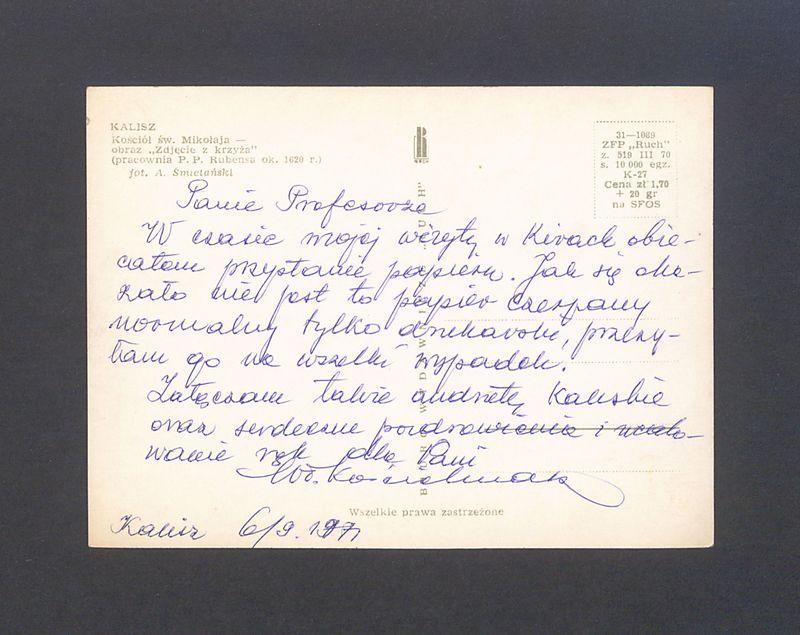 KALISZ
Kościół św. Mikołaja —
obraz „Zdjęcie z krzyża"
(pracownia P. P. Rubensa ok. 1620 r.)
fot. A. Śmietański
31—1089
ZFP „Ruch"
z. 519 III 70
s. 10 000 egz.
K-27
Cena zł 1,70
+ 20 gr
na SFOS
BIURO WYDAWNICZE „RUCH"
Panie Profesorze
W czasie mojej wizyty w Kirach obie-
całam przysłanie papieru. Jak się oka-
zało nie jest to papier czerpany
normalny tylko drukarski, przesy-
łam go na wszelki wypadek.
Załączam także andruty Kaliskie
oraz serdeczne pozdrowienia i ucało-
wanie rąk dla Pani
Wł. Kościelniak
Kalisz 6/9. 1971
Wszelkie prawa zastrzeżone